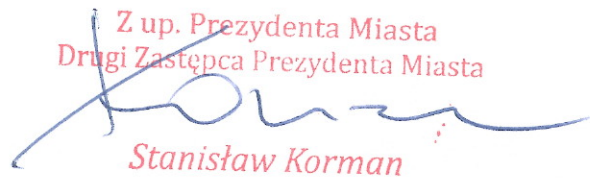 Z up. Prezydenta Miasta
Drugi Zastępca Prezydenta Miasta
Korman
Stanisław Korman